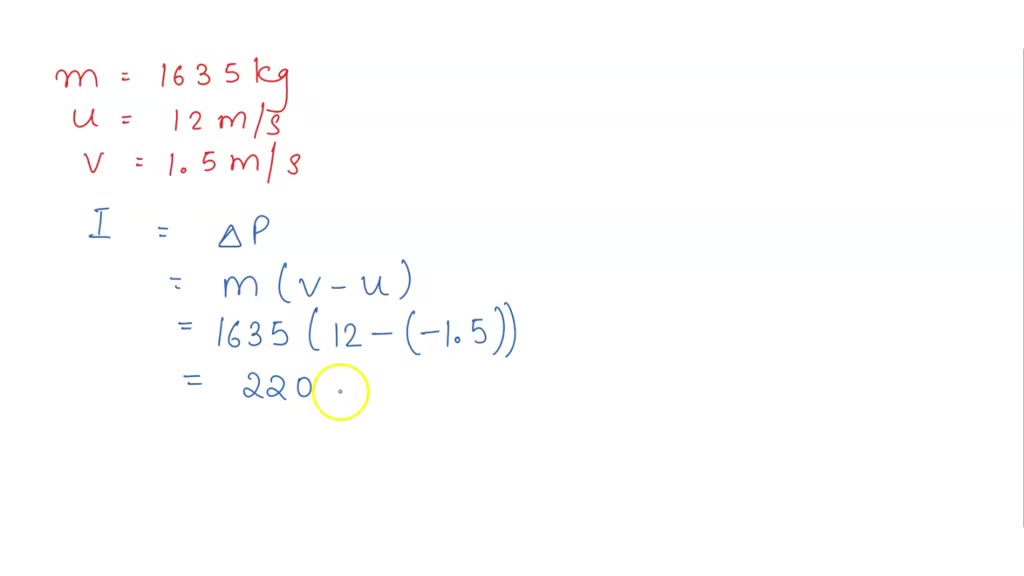 m = 1635 kg
u = 12 m/s
v = 1.5 m/s
I = ΔP
= m (v - u)
= 1635 (12 - (-1.5))
= 220